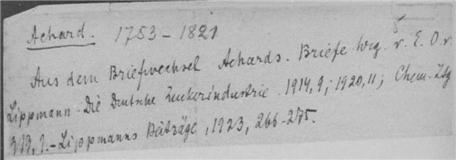 Achard. 1753-1821
Aus dem Briefwechsel Achards. Briefe hrg. v. E. O. v.
Lippmann - Die Deutsche Zuckerindustrie. 1919, 9; 1920, 11; Chem.-Ztg
9.- Lippmanns Beiträge, 1923, 266-275.